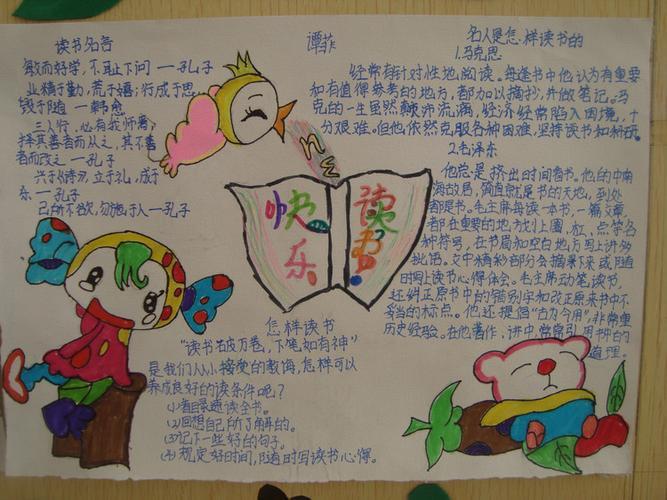 读书名言
敏而好学,不耻下问 — 孔子
业精于勤,荒于嬉;行成于思
毁于随 — 韩愈
三人行,必有我师焉;
择其善者而从之,其不善
者而改之 — 孔子
兴于《诗》,立于礼,成于
乐 — 孔子
己所不欲,勿施于人 — 孔子
谭菲
快乐
读书
怎样读书
“读书破万卷,下笔如有神”
是我们从小接受的教诲,怎样可以
养成良好的读条件呢?
(1)看目录速读全书。
(2)回想自己所了解的。
(3)记下一些好的句子。
(4)规定好时间,随时写读书心得。
名人是怎样读书的
1.马克思
经常有针对性地阅读。每逢书中他认为有重要
和有值得参考的地方,都加以摘抄,并做笔记。马
克思的一生虽然颠沛流漓,经济经常陷入困境,十
分艰难。但他依然克服各种困难,坚持读书和科研。
2.毛泽东
他总是挤出时间看书。他的中南
海故居,简直就是书的天地,到处
都是书。毛主席每读一本书,一篇文章,
都在重要的地方划上圈、杠、点等各
种符号,在书眉和空白地方写上许多
批语。文中精彩部分会摘录下来或随
时写上读书心得体会。毛主席动笔读书,
还纠正原书中的错别字和改正原来书中不
妥当的标点。他还提倡“古为今用”,非常重
历史经验。在他著作、讲中,常常引用书的
道理。